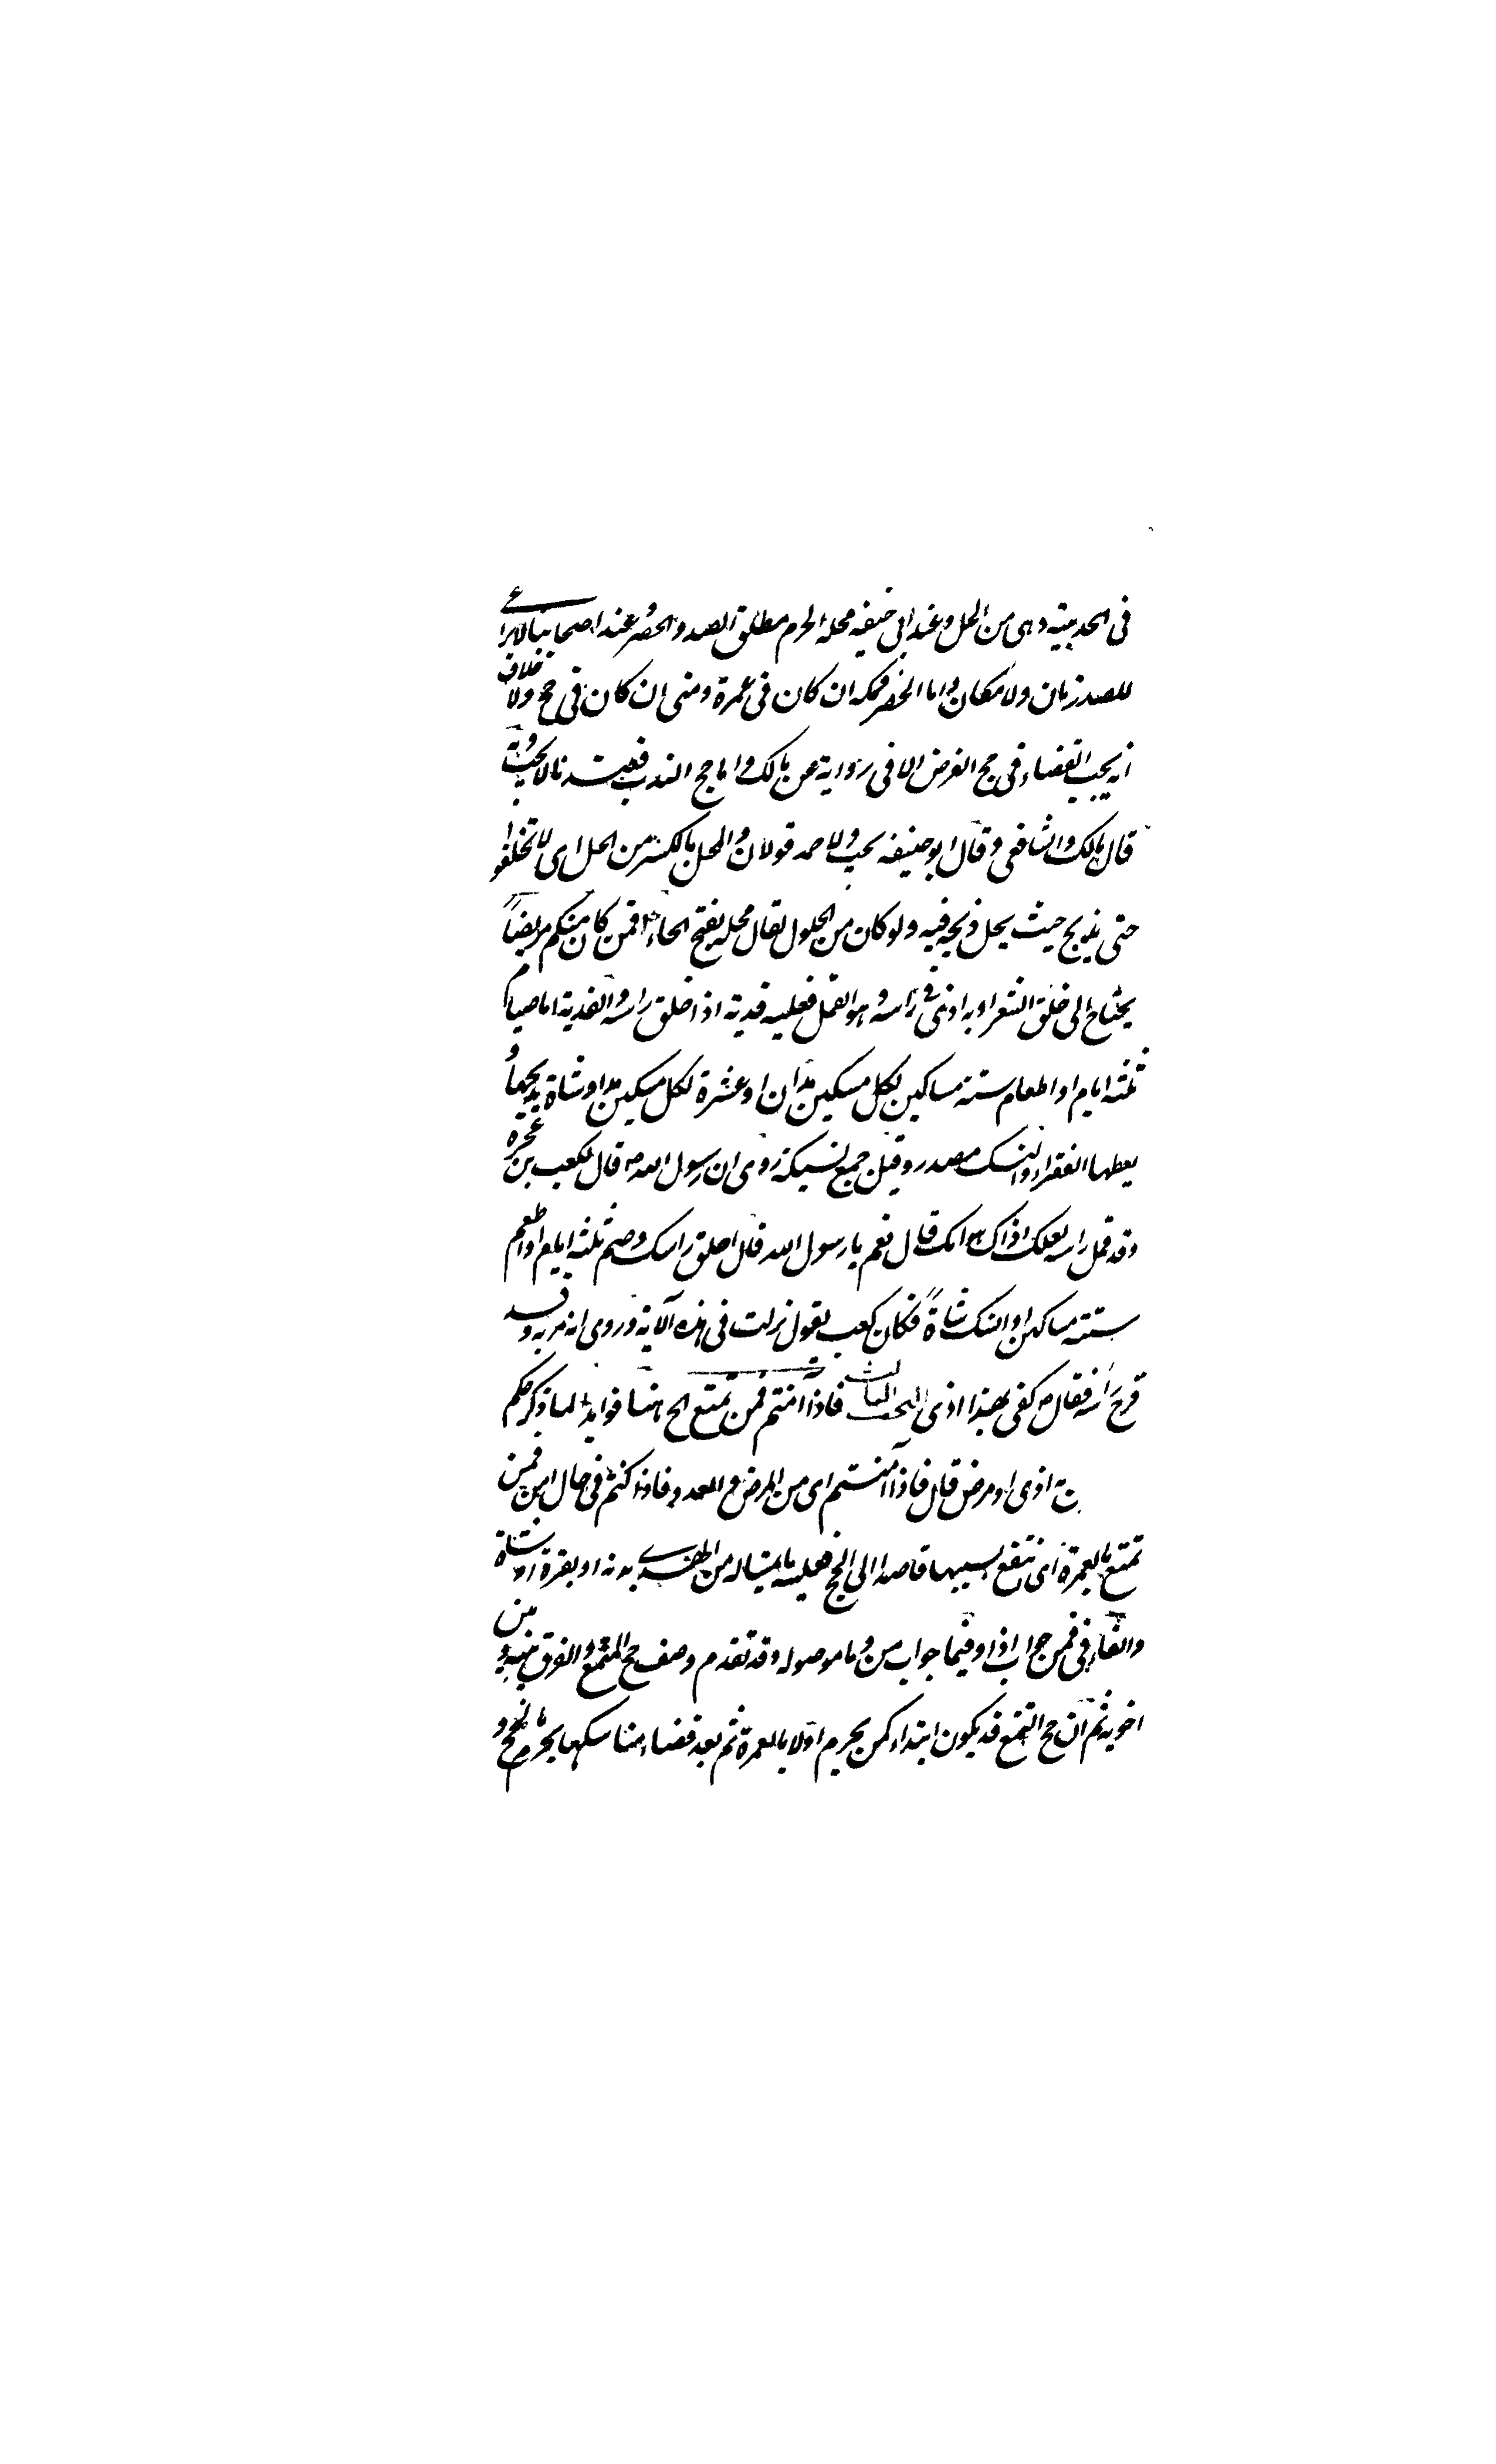 فى الحديبية وهى من الحل وعند ابى حنيفه محله الحرم مطلق الصد والحصر عند اصحابنا لا يراعى
للصد زمان ولا مكان واما الحصر فمكه ان كان فى عمرة ومنى ان كان فى حج ولا خلاف
انه يجب القضاء فى حج الفرض الا فى رواية عن مالك واما حج الندب فعندنا لا يجب وبه
قال مالك والشافعى وقال ابو حنيفه يجب ولاحمد قولان والمحل بالكسر من الحل اى لا تحلقوا
حتى يذبح حيث يحل ذبحه فيه ولو كان من الحلول لقال محله بفتح الحاء فمن كان منكم مريضاً
يحتاج الى حلق الشعر او به اذى فى راسه وهو القمل فعليه فدية اذا حلق راسه والفدية اما صيام
ثلثه ايام او اطعام ستة مساكين لكل مسكين مدان او عشرة لكل مسكين مد او شاة يذبحها و
يعطها الفقراء والنسك مصدر وقيل جمع نسيكة روى ان رسول الله ص قال لكعب بن عجره
وقد قمل راسه لعلك اذاك هوامك قال نعم يا رسول الله قال احلق راسك وصم ثلثه ايام او اطعم
ستة مساكين او انسك شاةً فكان كعب يقول نزلت فى هذه الآية وروى انه مر به وقد
قرح راسه فقال ص كفى بهذا اذى البحث الثالث فاذا امنتم فمن تمتع الخ هنا فوايد لما ذكر حكم
به اذى او مرض قال فاذا آمنتم اى من المرض والعدو فاذا كنتم فى حال امن فمن
تمتع بالعمرة اى تنتفع بسببها قاصدا الى الحج فعليه ما تيسر له من الهدى بدنه او بقرة او شاة
والفاء فى فمن جواب اذا وفيما جواب من وما موصوله وقد تقدم وصف حج التمتع والفرق بينه وبين
اخويه ثم ان حج التمتع قد يكون ابتداء كمن يحرم اولا بالعمرة ثم بعد قضاء مناسكها يحرم بالحج و